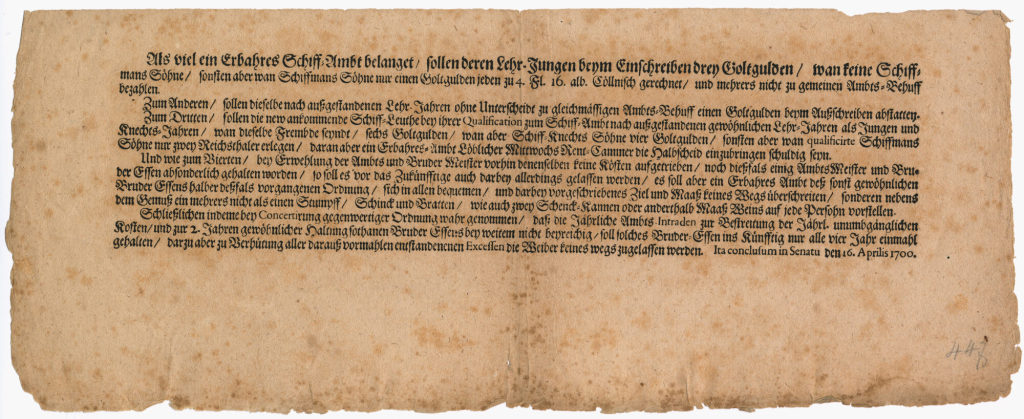 Als viel ein Erbahres Schiff-Ambt belanget / sollen deren Lehr-Jungen beym Einschreiben drey Goltgulden / wan keine Schiff-
mans Söhne / sonsten aber wan Schiffmans Söhne nur einen Goltgulden jeden zu 4. Fl. 16. alb. Cöllnisch gerechnet / und mehrers nicht zu gemeinen Ambts-Behuff
bezahlen.
Zum Anderen / sollen dieselbe nach außgestandenen Lehr-Jahren ohne Unterscheidt zu gleichmässigen Ambts-Behuff einen Goltgulden beym Außschreiben abstatten.
Zum Dritten / sollen die new ankommende Schiff-Leuthe bey ihrer Qualification zum Schiff-Ambt nach außgestandenen gewöhnlichen Lehr-Jahren als Jungen und
Knechts-Jahren / wan dieselbe Frembde seyndt / sechs Goltgulden / wan aber Schiff-Knechts Söhne vier Goltgulden / sonsten aber wan qualificirte Schiffmans
Söhne nur zwey Reichsthaler erlegen / daran aber ein Erbahres-Ambt Löblicher Mittwochs Rent-Cammer die Halbscheid einzubringen schuldig seyn.
Und wie zum Vierten / bey Erwehlung der Ambts und Bruder Meister vorhin denenselben keine Kösten aufgetrieben / noch dießfals einig Ambts Meister und Bru-
der Essen absönderlich gehalten worden / so soll es vor das Zukünfftige auch darbey allerdings gelassen werden / es soll aber ein Erbahres Ambt deß sonst gewöhnlichen
Bruder Essens halber deßfals vorgangenen Ordnung / sich in allen bequemen / und darbey vorgeschriebenes Ziel und Maaß keines Wegs überschreiten / sonderen nebens
dem Gemüß ein mehrers nicht als einen Stumpff / Schinck und Bratten / wie auch zwey Schenck-Kannen oder anderthalb Maaß Weins auf jede Persohn vorstellen.
Schließlichen indeme bey Concertirung gegenwertiger Ordnung wahr genommen / daß die Jährliche Ambts-Intraden zur Bestreitung der Jährl. unumbgänglichen
Kosten / und zur 2. Jahren gewöhnlicher Haltung sothanen Bruder Essens bey weitem nicht beyreichig / soll solches Bruder-Essen ins Künfftig nur alle vier Jahr einmahl
gehalten / darzu aber zu Verhütung aller darauß vormahlen entstandenenen Excessen die Weiber keines wegs zugelassen werden. Ita conclusum in Senatu den 16. Aprilis 1700.